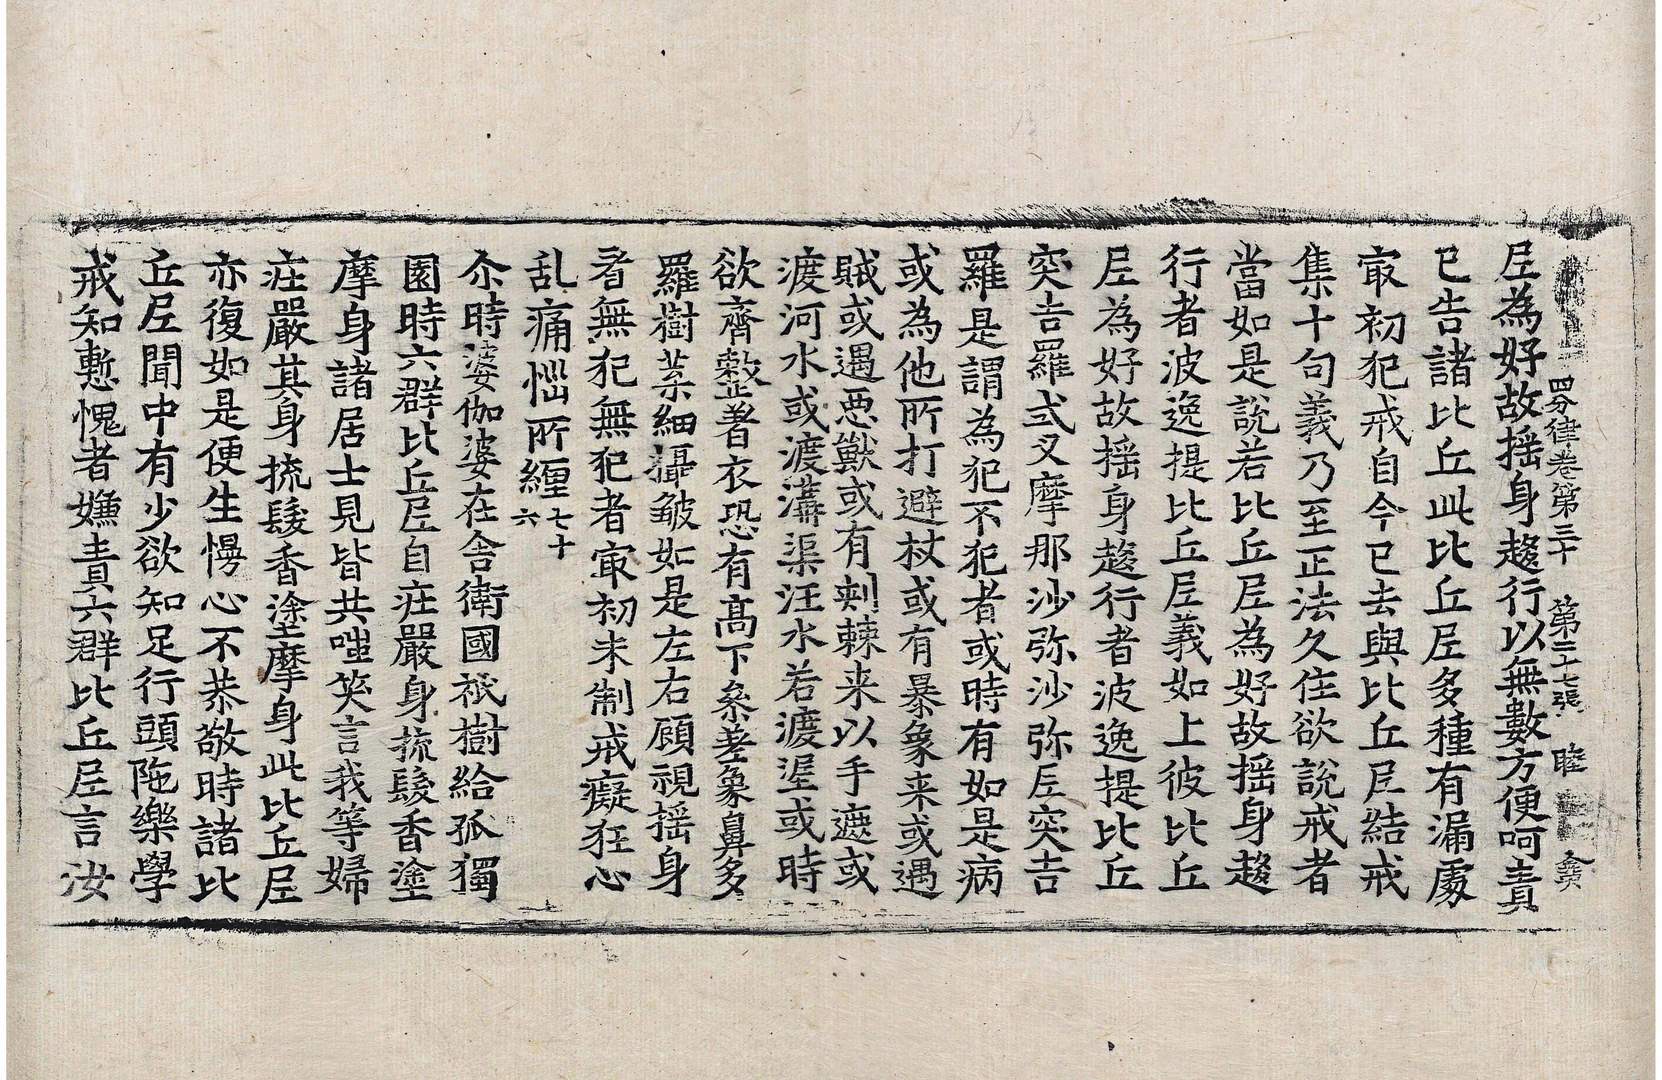 四分律卷第三十　第二十七張　睦
尼為好故揺身趍行以無數方便呵責
已告諸比丘此比丘尼多種有漏處
㝡初犯戒自今已去與比丘尼結戒
集十句義乃至正法久住欲說戒者
當如是說若比丘尼為好故揺身趍
行者波逸提比丘尼義如上彼比丘
尼為好故揺身趍行者波逸提比丘
突吉羅式叉摩那沙弥沙弥尼突吉
羅是謂為犯不犯者或時有如是病
或為他所打避杖或有暴象来或遇
賊或遇惡獸或有刾棘来以手遮或
渡河水或渡溝渠汪水若渡渥或時
欲齊整著衣恐有髙下參差象鼻多
羅樹葉細攝皺如是左右顧視揺身
者無犯無犯者㝡初未制戒癡狂心
乱痛惱所纏七十六
尒時婆伽婆在舎衛國祇樹給孤獨
園時六群比丘尼自莊嚴身梳髮香塗
摩身諸居士見皆共嗤笑言我等婦
莊嚴其身梳髮香塗摩身此比丘尼
亦復如是便生慢心不恭敬時諸比
丘尼聞中有少欲知足行頭陁樂學
戒知慙愧者嫌責六群比丘尼言汝